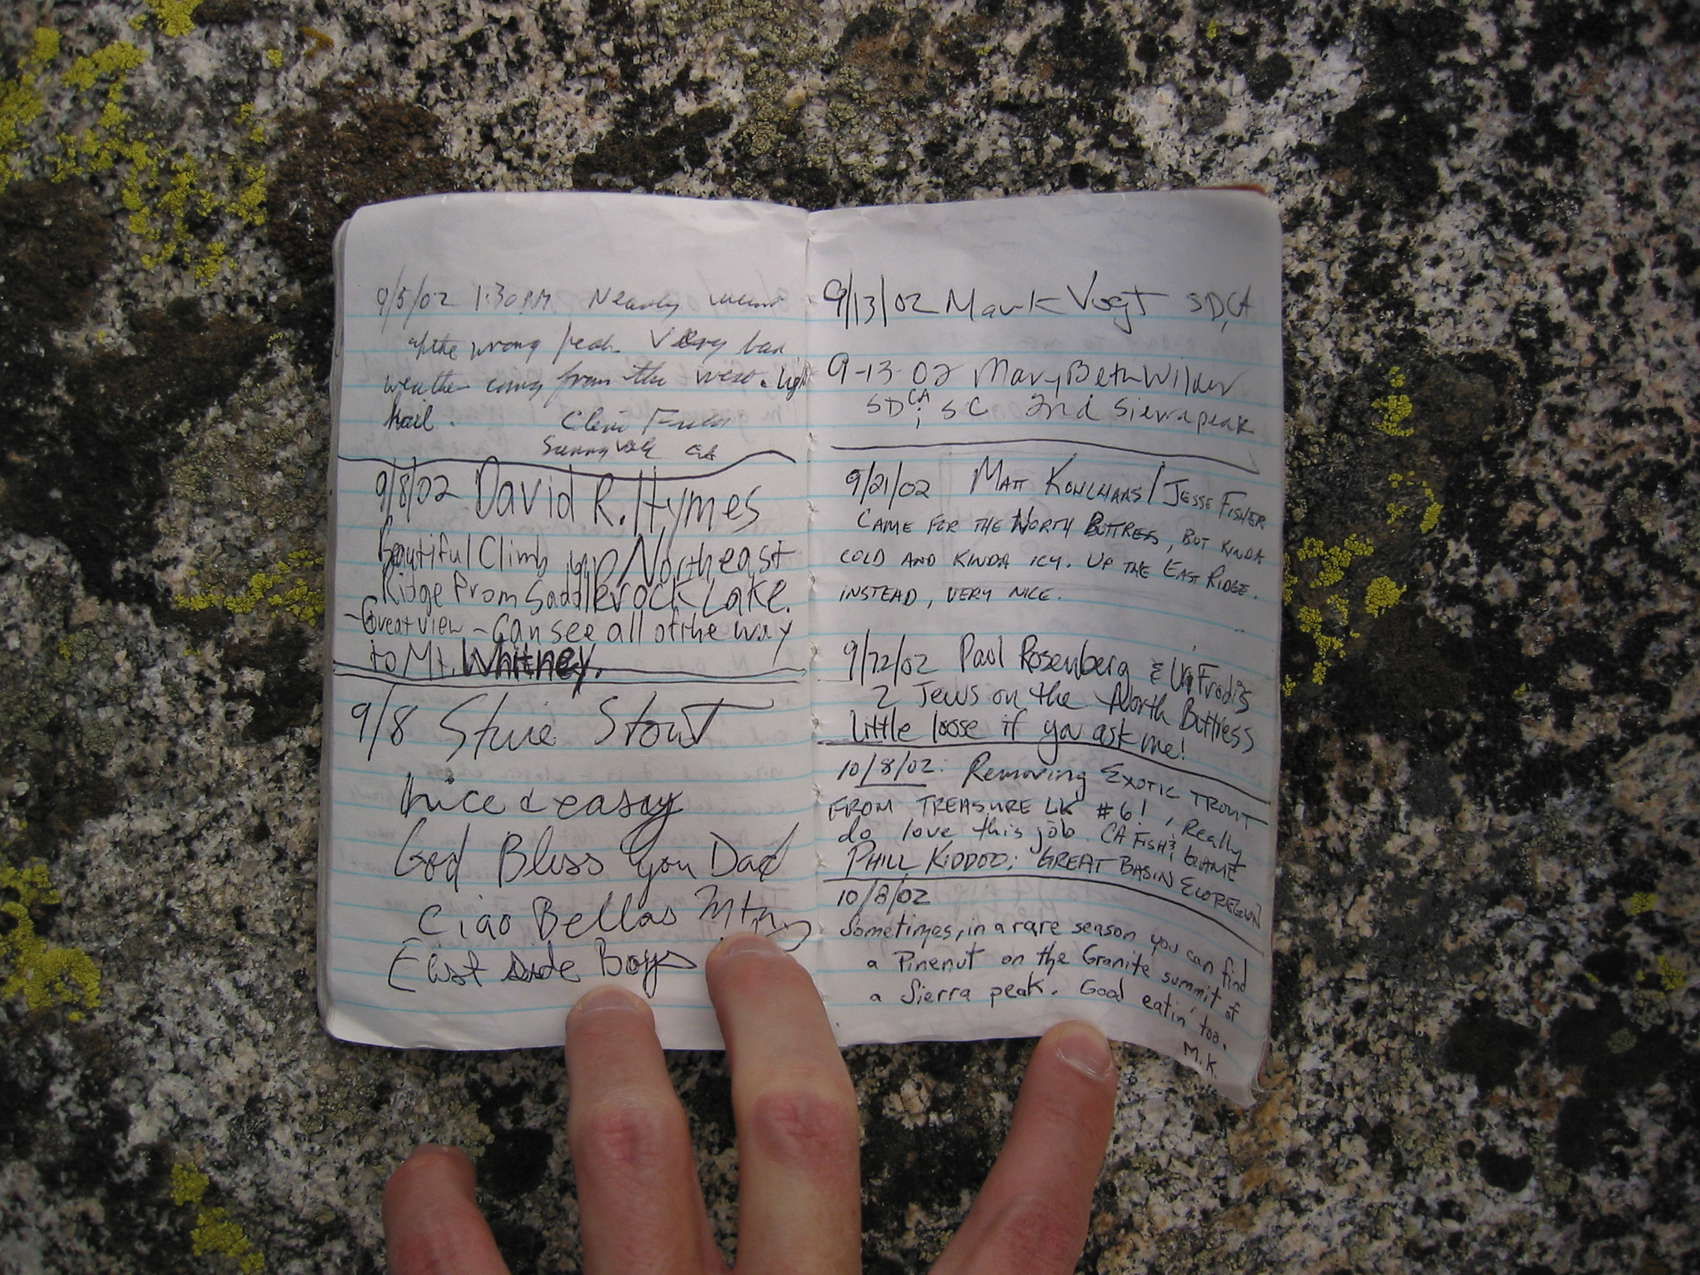 9/5/02 1:30 PM. Nearly went
up the wrong peak. Very bad
weather coming from the west. Light
hail.
Sunnyvale CA
9/8/02 David R. Hymes
Beautiful Climb up Northeast
Ridge From Saddlerock Lake.
-Great view - Can see all of the way
to Mt. Whitney.
9/8 Stout
nice & easy
God Bless you Dad
Ciao Bellas Mtns
East side Boys
9/13/02 Mark Vogt SD, CA
9-13-02 Mary Beth Wilder
SD CA; SC 2nd Sierra peak
9/21/02 MATT / JESSE FISHER
CAME FOR THE NORTH BUTTRESS, BUT KINDA
COLD AND KINDA ICY. UP THE EAST RIDGE.
INSTEAD, VERY NICE.
9/22/02 Paul Rosenberg &
2 Jews on the North Buttress
Little loose if you ask me!
10/8/02: Removing EXOTIC TROUT
FROM TREASURE LK #6!, Really
do love this job. CA FISH & GAME
PHILL KIDDOO; GREAT BASIN ECOREGION
10/8/02
Sometimes, in a rare season you can find
a Pinenut on the Granite summit of
a Sierra peak. Good eatin, too.
M.K.